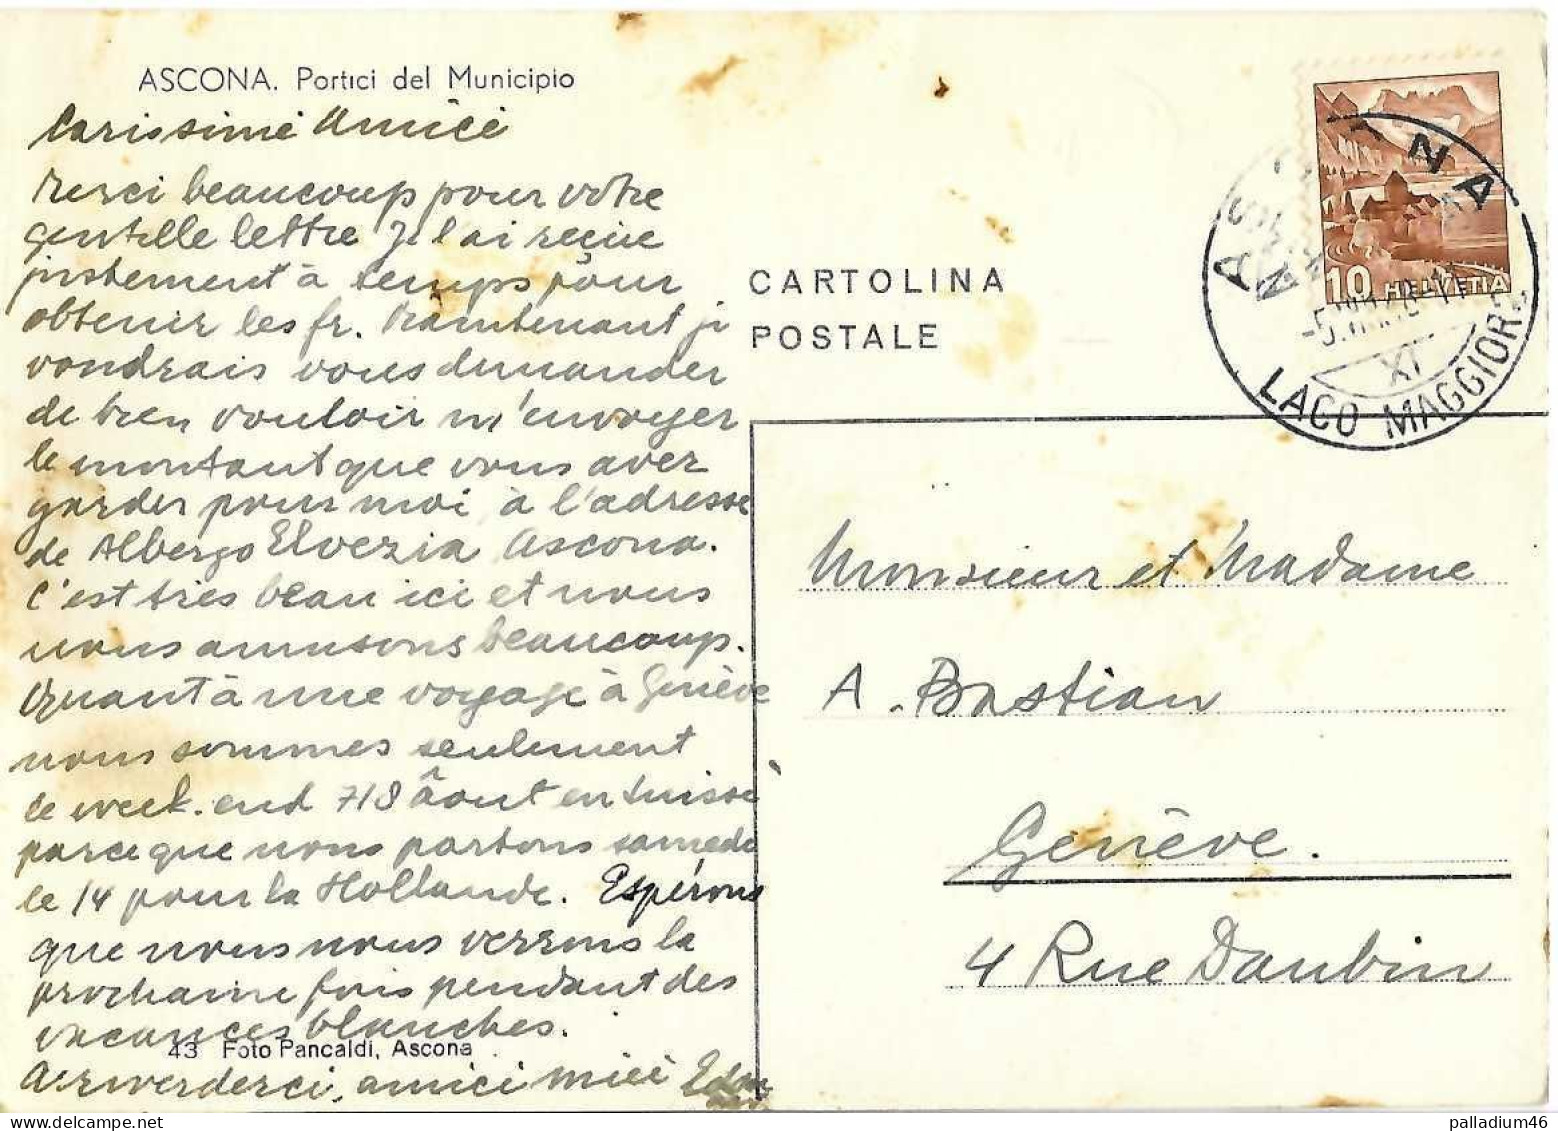 ASCONA. Portici del Municipio
Carissimi Amici
Merci beaucoup pour votre
gentille lettre Je l'ai reçue
justement à temps pour
obtenir les fr. Maintenant je
voudrais vous demander
de bien vouloir m'envoyer
le montant que vous avez
garder pour moi à l'adresse
de Albergo Elvezia Ascona.
C'est très beau ici et nous
nous amusons beaucoup.
Quant à une voyage à Genève
nous sommes seulement
le week-end 7/8 Âout en Suisse
parceque nous partons samedi
le 14 pour la Hollande. Espérons
que nous nous verrons la
prochaine fois pendant des
vacances blanches.
43 Foto Pancaldi, Ascona
Arrivederci, amici miei
CARTOLINA
POSTALE
10 HELVETIA
ASCONA
LAGO MAGGIORE
XI
Monsieur et Madame
A. Bastian
Genève.
4 Rue Daubin
palladium46